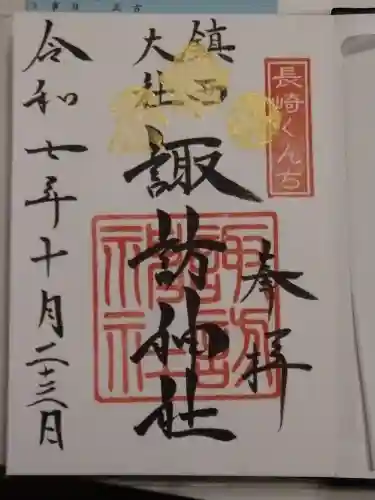 長崎くんち
奉拝
鎮西
大社
諏訪神社
諏訪神社
令和七年十月二十三日